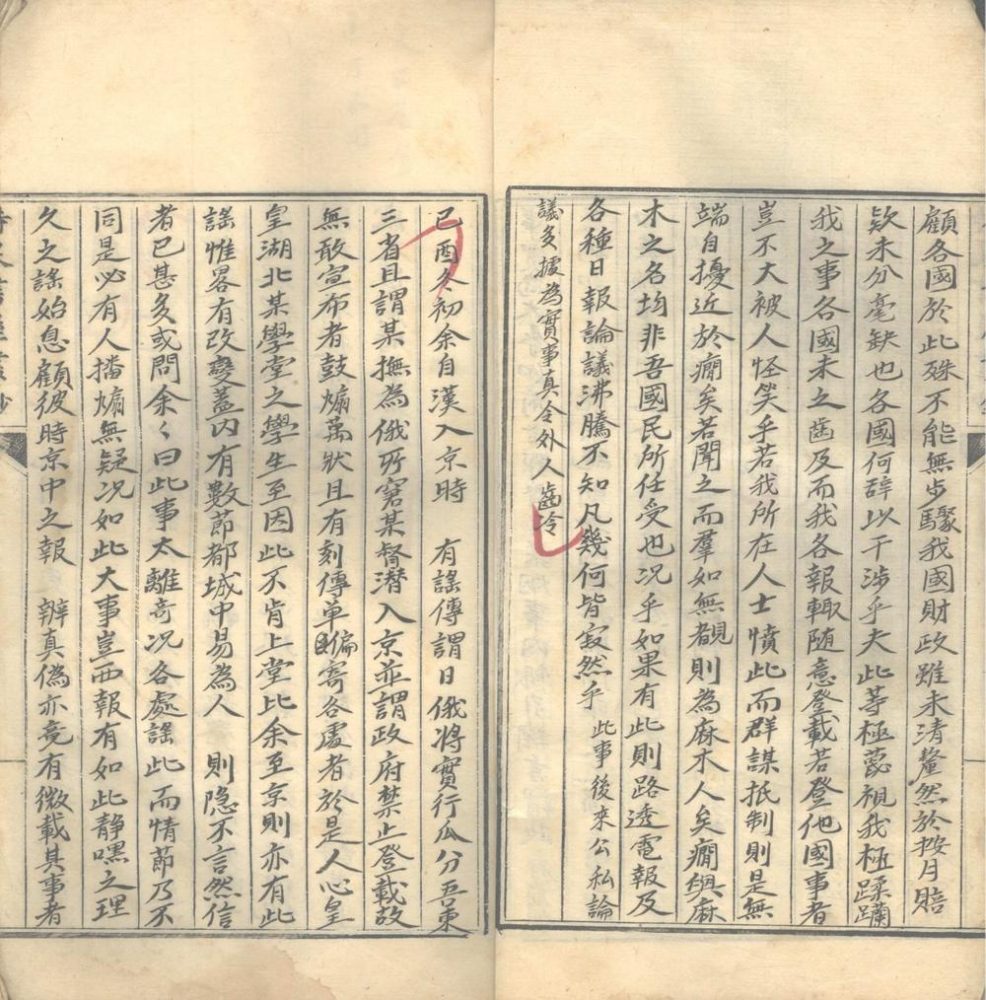 顧各國於此殊不能無步驟我國財政雖未清釐然於按月賠
欵未分毫缺也各國何辭以干涉乎夫此等極藐視我極蹂躪
我之事各國未之齒及而我各報輒随意登載若登他國事者
豈不大被人怪笑乎若我所在人士憤此而群謀抵制則是無
端自擾近於癇矣若聞之而羣如無覩則為麻木人矣癇與麻
木之名均非吾國民所任受也况乎如果有此則路透電報及
各種日報論議沸騰不知凡幾何皆寂然乎 此事後來公私論
議多據為實事真令外人齒冷
己酉冬初余自漢入京時 有謡傳謂日俄將實行瓜分吾東
三省且謂某撫為俄所窘某督潜入京並謂政府禁止登載故
無敢宣布者鼓煽萬狀且有刻傳单徧寄各處者於是人心皇
皇湖北某學堂之學生至因此不肯上堂比余至京則亦有此
謡惟畧有改變蓋内有數節都城中易為人 則隐不言然信
者已甚多或問余々曰此事太離竒况各處謡此而情節乃不
同是必有人播煽無疑况如此大事豈西報有如此静嘿之理
久之謡始息顧彼時京中之報 辨真偽亦竟有微載其事者